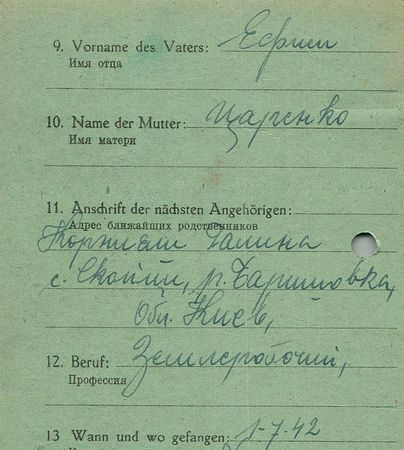 9. Vorname des Vaters: Ефрим
Имя отца
10. Name der Mutter: Царенко
Имя матери
11. Anschrift der nächsten Angehörigen:
Адрес ближайших родственников
Галина
с. р. Баришовка,
Обл. Киев,
12. Beruf:
Профессия
13 Wann und wo gefangen: 1-7.42